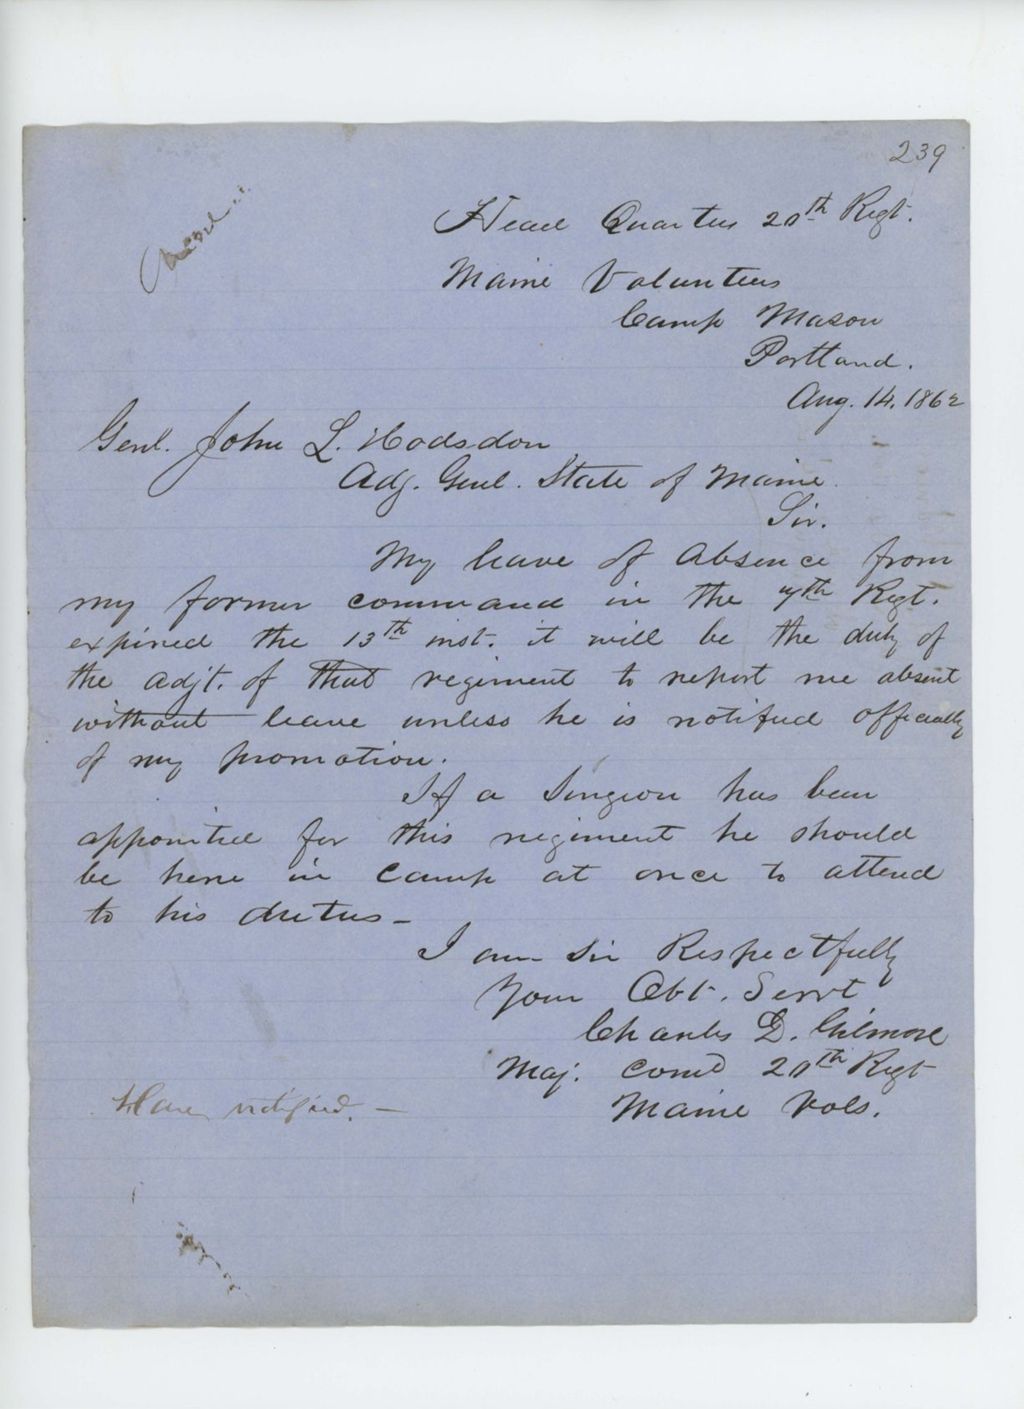 239
Head Quarters 20th Regt.
Maine Volunteers
Camp Mason
Portland.
Aug. 14, 1862
Genl. John L. Hodsdon
Adj. Genl. State of Maine.
Sir.
My leave of absence from
my former command in the 7th Regt.
expired the 13th inst. it will be the duty of
the adjt. of that regiment to report me absent
without leave unless he is notified officially
of my promotion.
If a Surgeon has been
appointed for this regiment he should
be here in camp at once to attend
to his duties -
I am Sir Respectfully
Your Obt. Servt
Charles D. Gilmore
Maj. Comd 20th Regt
Maine Vols.
Have notified. -